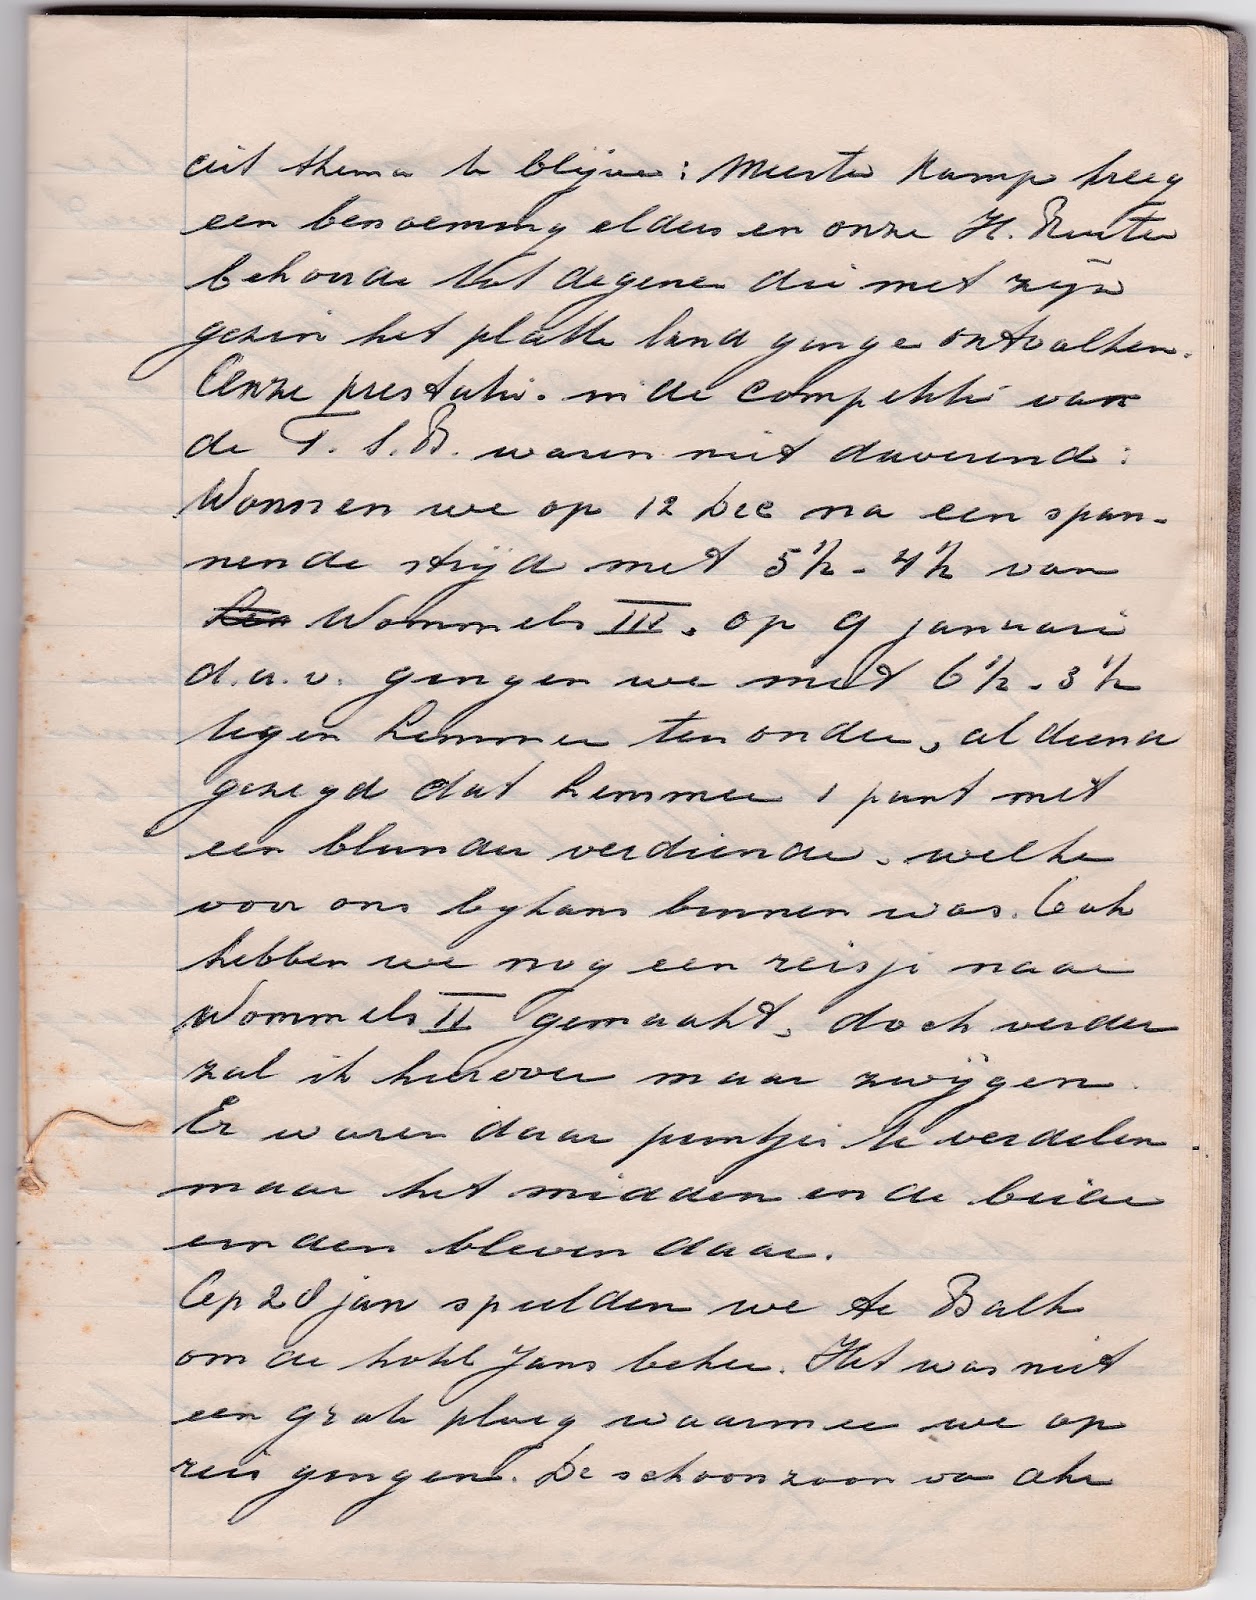 dit thema te blijven: Meester Kamp kreeg
een benoeming elders en onze H. Reuter
behoorde tot degenen die met zijn
gezin het platte land gingen ontvolken.
Onze prestatie. in de competitie van
de F. S. B. waren niet daverend:
Wonnen we op 12 Dec na een span-
nende strijd met 5½ - 4½ van
Wommels III, op 9 januari
d.a.v. gingen we met 6½ - 3½
tegen Lemmer ten onder, al dient
gezegd dat Lemmer 1 punt met
een blunder verdiende, welke
voor ons bykans binnen was. Ook
hebben we nog een reisje naar
Wommels II gemaakt, doch verder
zal ik hierover maar zwijgen.
Er waren daar puntjes te verdelen
maar het midden en de beide
einden bleven daar.
Op 28 jan speelden we te Balk
om de Jans beker. Het was niet
een ploeg waarmee we op
reis gingen. De schoonzoon van